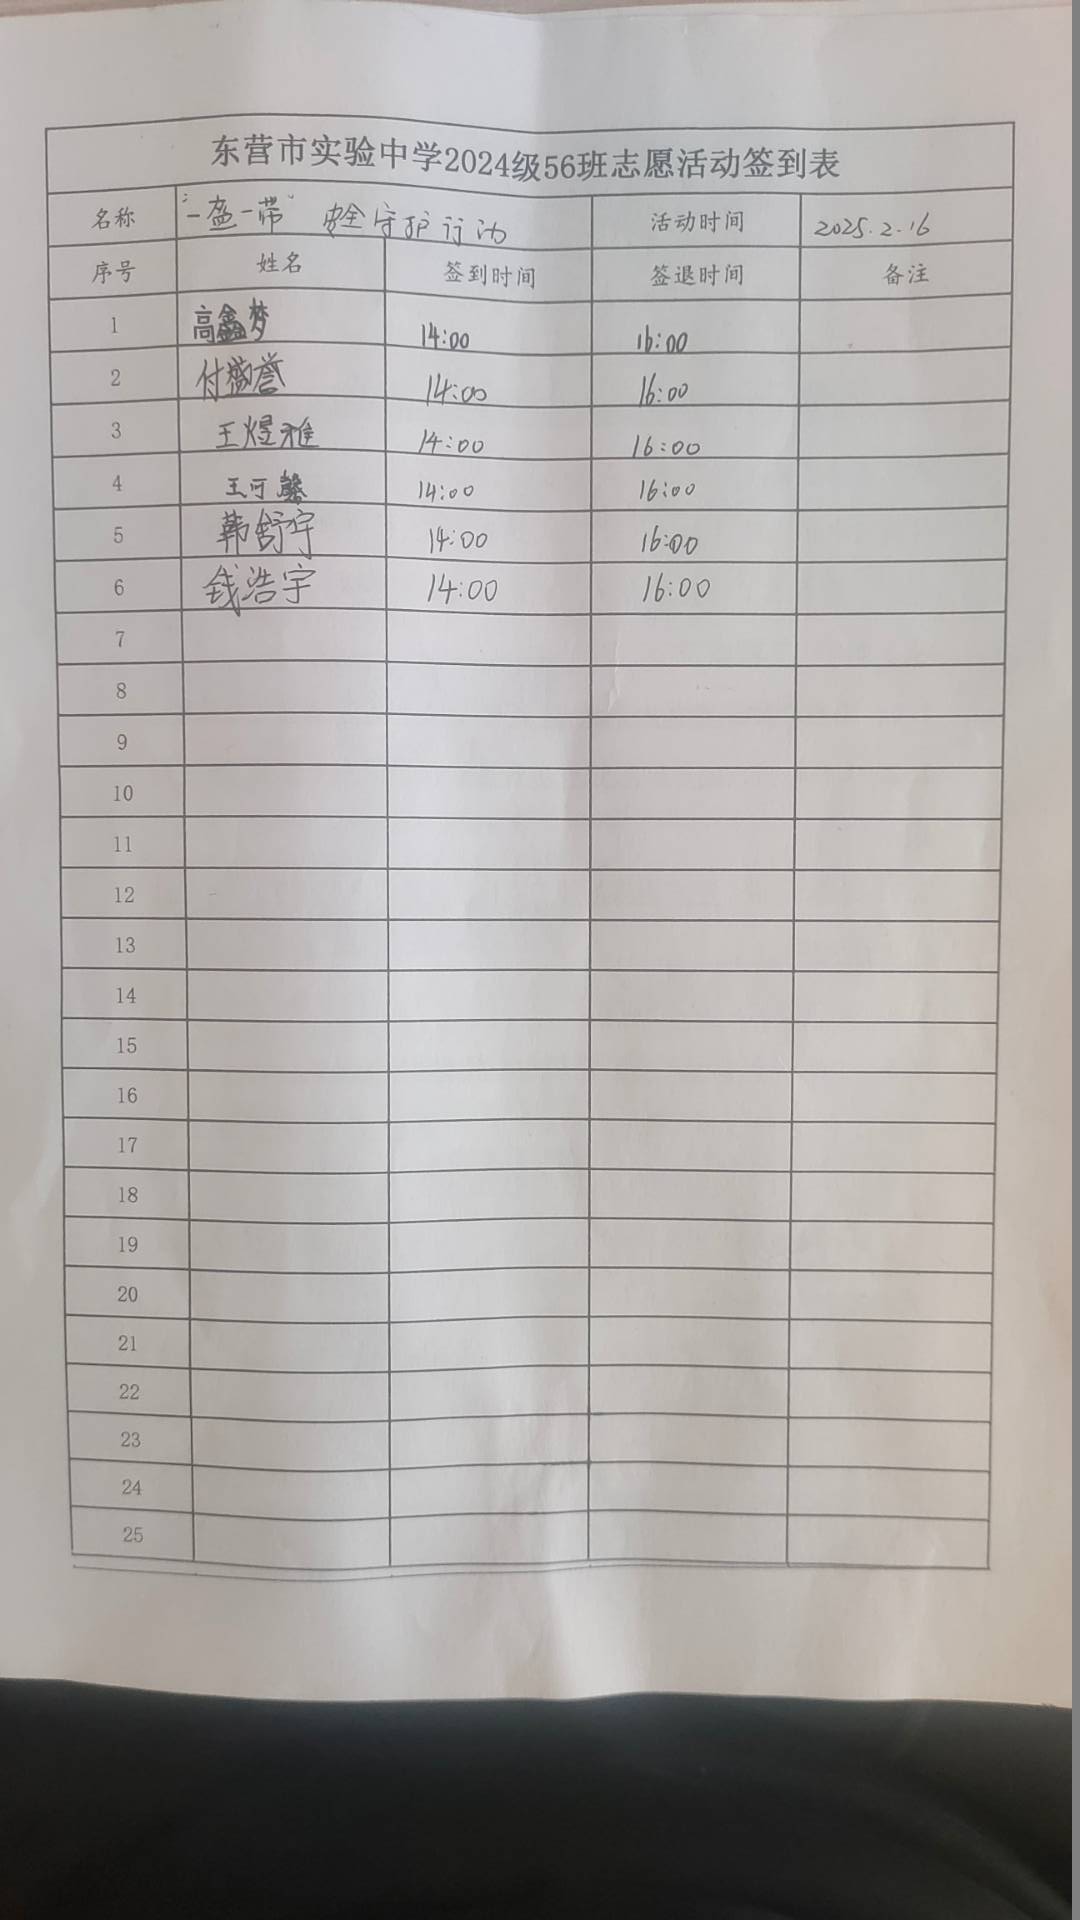 东营市实验中学2024级56班志愿活动签到表
名称 “一盔一带” 安全守护行动 活动时间 2025.2.16
序号 姓名 签到时间 签退时间 备注
1 高鑫梦 14:00 16:00
2 付 誉 14:00 16:00
3 王煜雅 14:00 16:00
4 王可馨 14:00 16:00
5 韩舒宇 14:00 16:00
6 钱浩宇 14:00 16:00
7
8
9
10
11
12
13
14
15
16
17
18
19
20
21
22
23
24
25